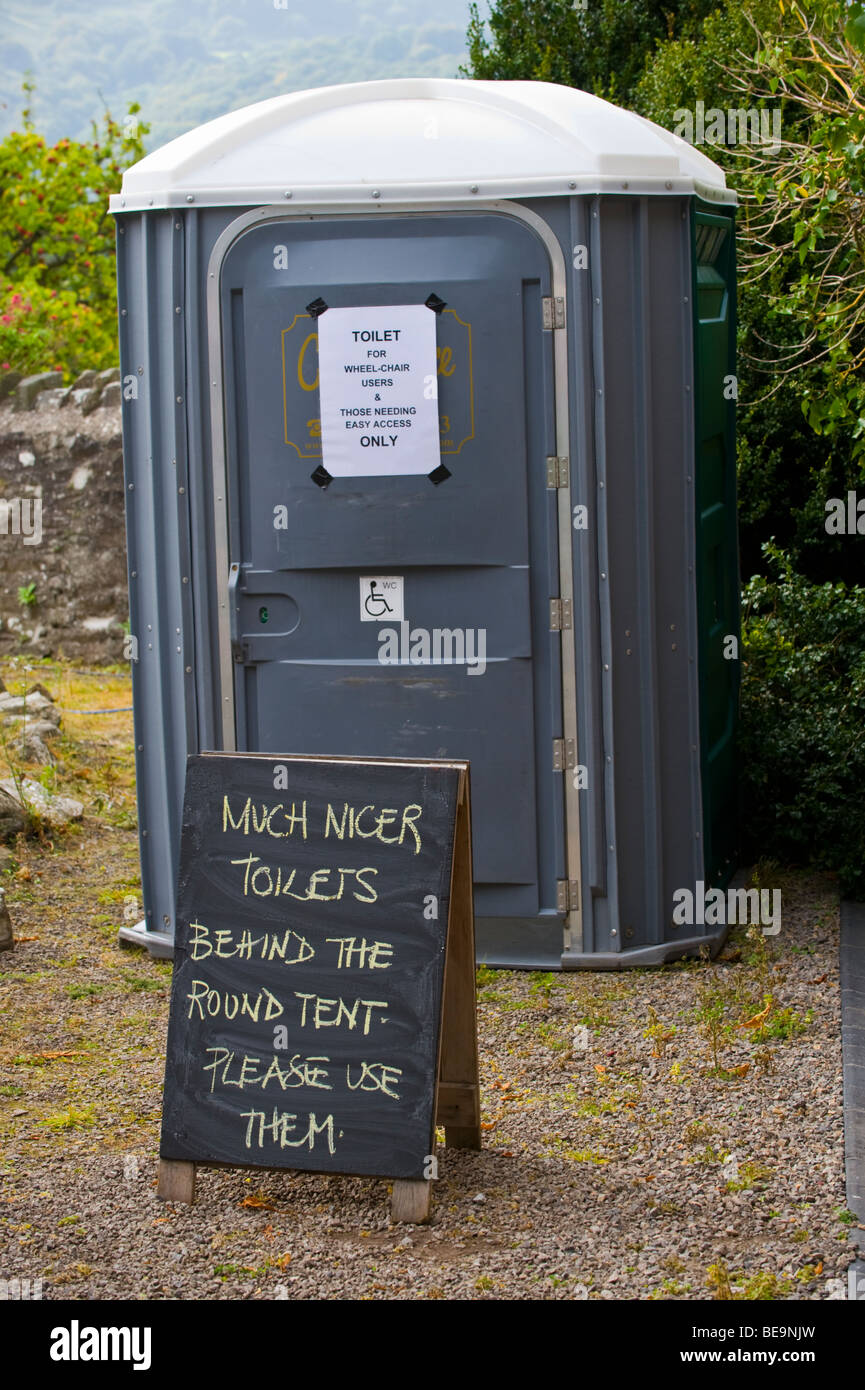 TOILET
FOR
WHEEL-CHAIR
USERS
&
THOSE NEEDING
EASY ACCESS
ONLY
WC
MUCH NICER
TOILETS
BEHIND THE
ROUND TENT.
PLEASE USE
THEM.
alamy
Image ID: BE9NJW
www.alamy.com